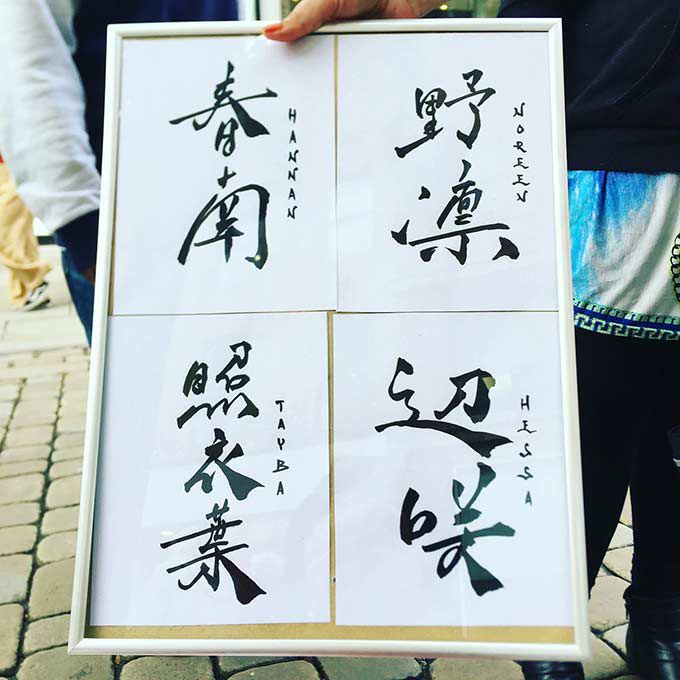 春南
HANNAN
野凛
NOREEN
照衣葉
TAYBA
辺咲
HESSA